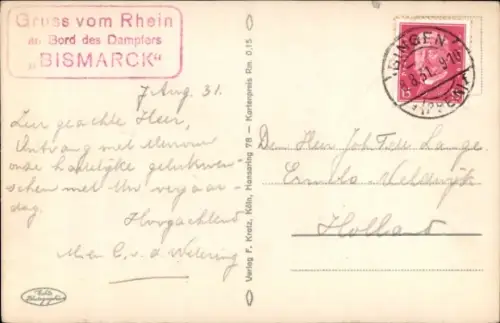 Gruss vom Rhein
an Bord des Dampfers
„BISMARCK“
7 Aug. 31.
Zeer geachte Heer,
Ontvang met Mevrouw
onze hartelijke gelukwen-
schen met Uw verjaar-
dag.
Hoogachtend
C. v. d. Wetering
Verlag F. Kratz, Köln, Hansaring 78 — Kartenpreis Rm. 0,15
BINGEN
8.31. 9-10
Den Heer Joh. Lange
Ermelo Veldwijk
Holland